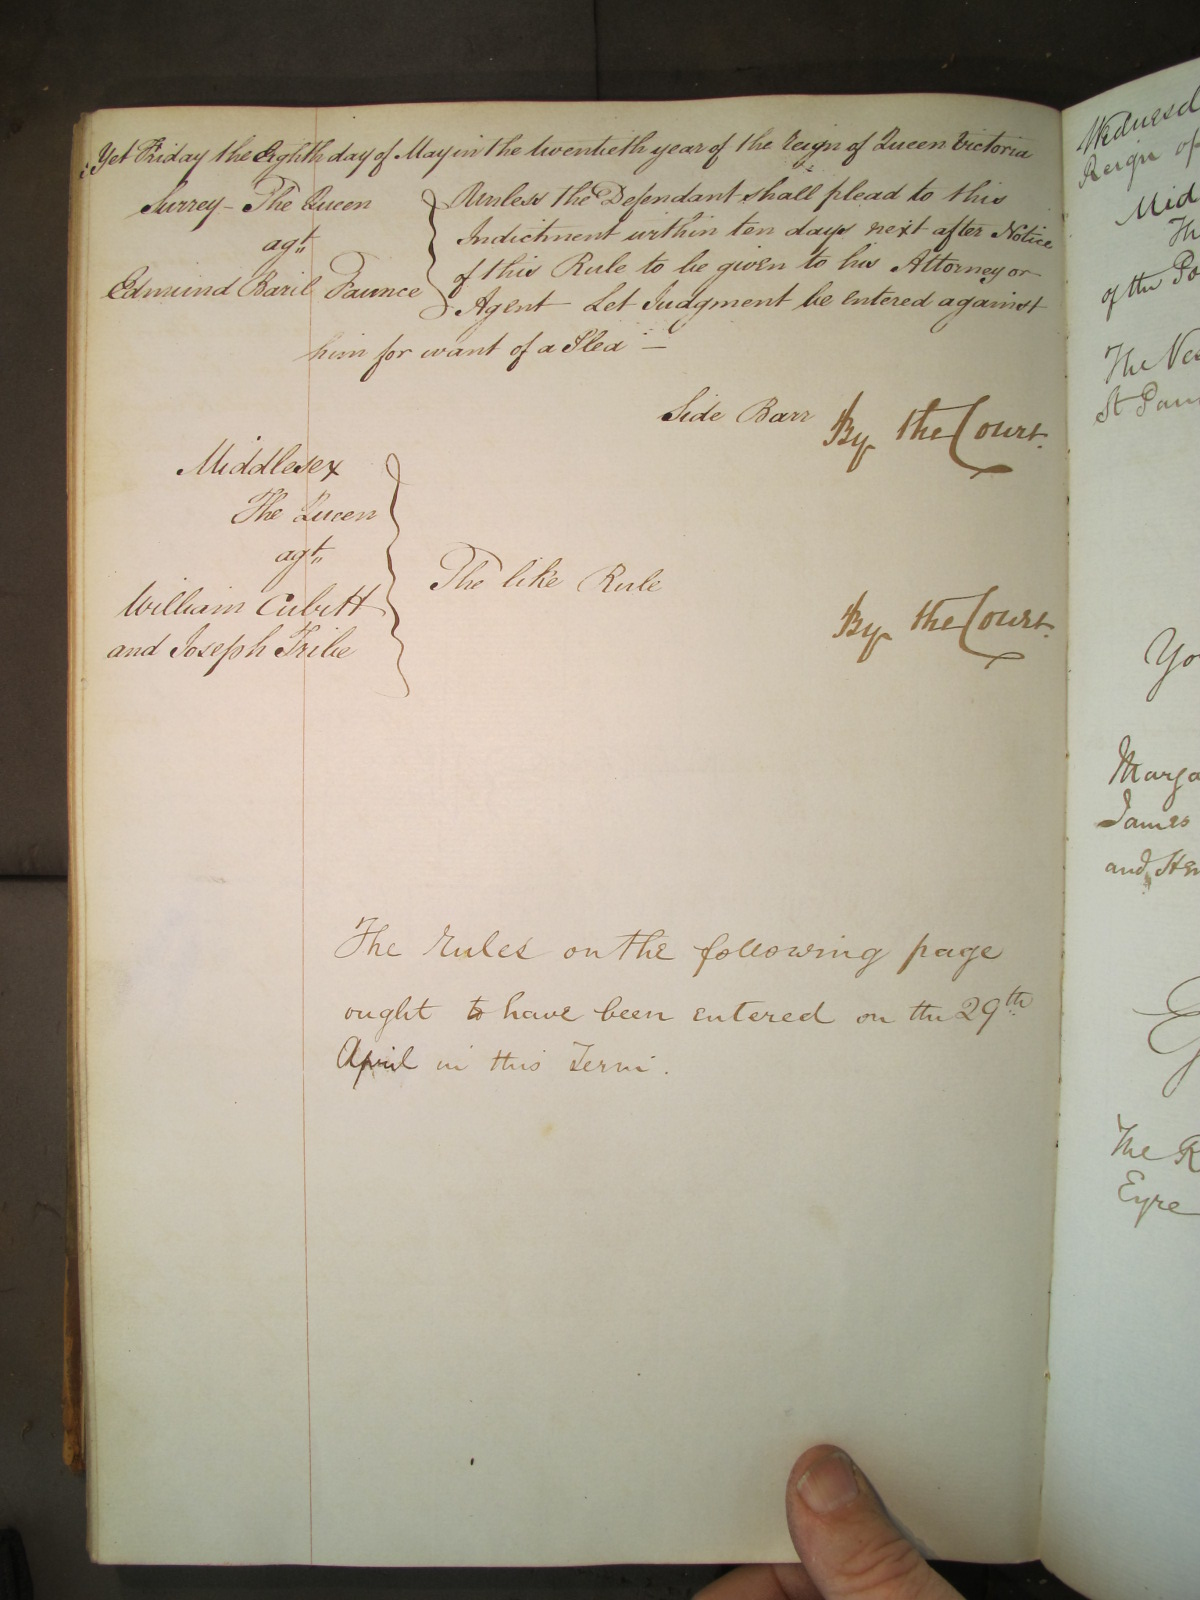 Yet Friday the Eighth day of May in the twentieth year of the Reign of Queen Victoria
Surrey - The Queen
agt
Edmund Baril Faunce
Unless the Defendant shall plead to this
Indictment within ten days next after Notice
of this Rule to be given to his Attorney or
Agent Let Judgment be entered against
him for want of a Plea —
Side Barr By the Court.
Middlesex
The Queen
agt
William Cubitt
and Joseph Tribe
The like Rule
By the Court.
The Rules on the following page
ought to have been entered on the 29th
April in this Term.
Wednesd
Reign of
Mid
Th
of the Po
The Ve
St Pan
Yo
Marga
James
and Hen
The R
Eyre